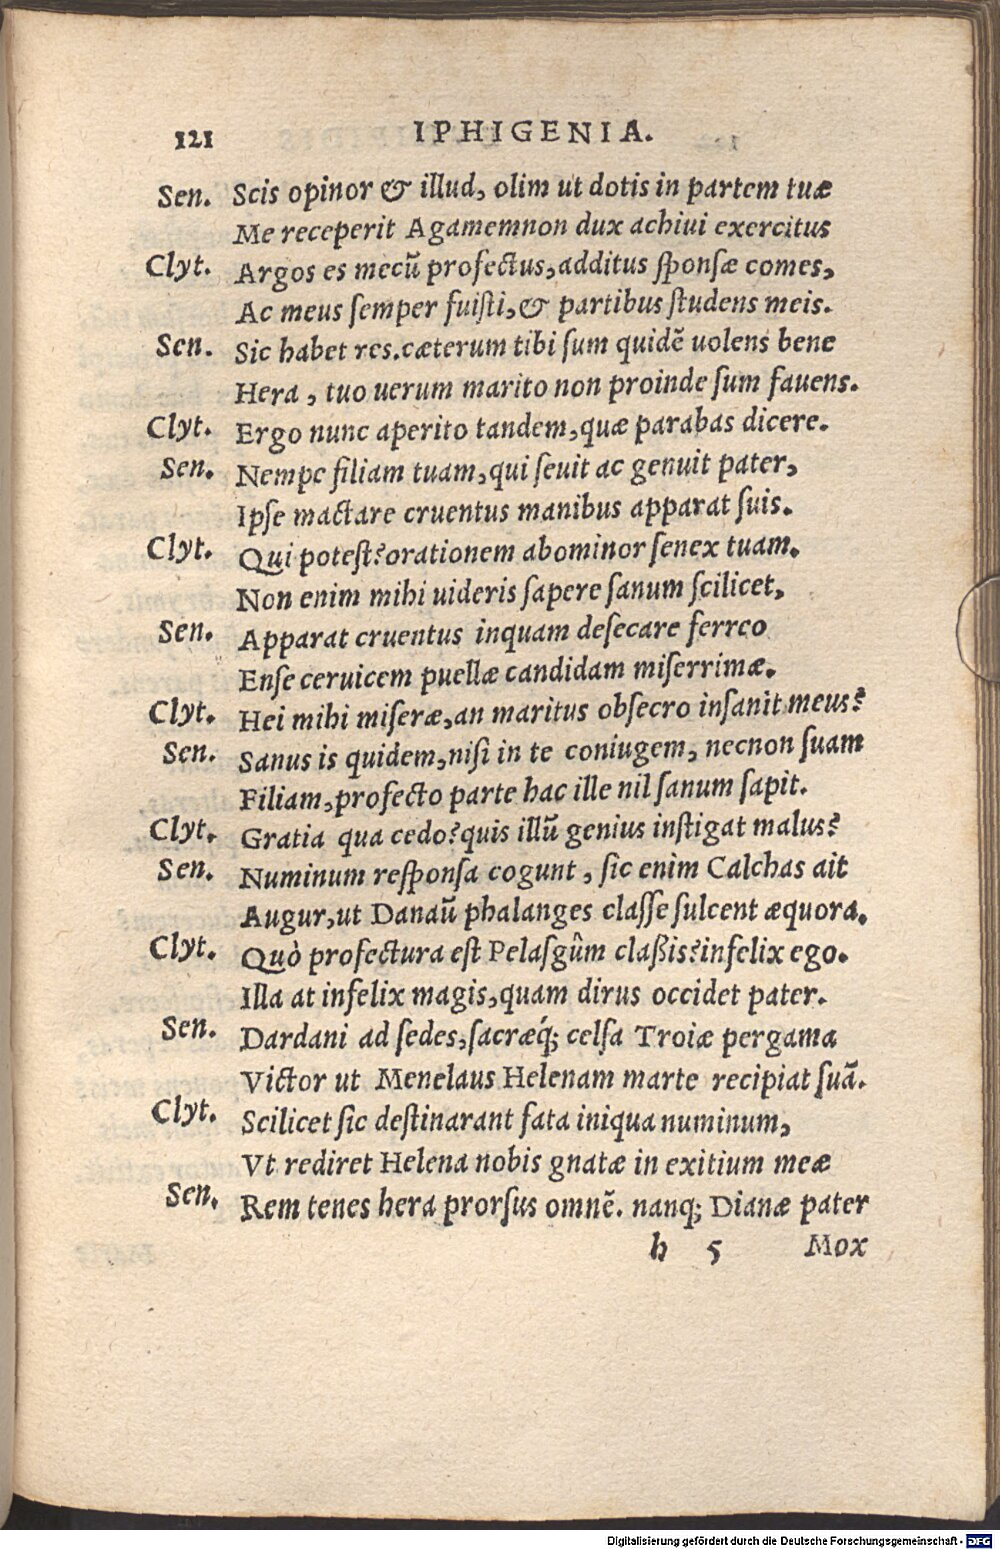 121 IPHIGENIA.
Sen. Scis opinor & illud, olim ut dotis in partem tuæ
Me receperit Agamemnon dux achiui exercitus
Clyt. Argos es mecũ profectus, additus ſponſæ comes,
Ac meus ſemper fuiſti, & partibus ſtudens meis.
Sen. Sic habet res. cæterum tibi ſum quidẽ uolens bene
Hera, tuo uerum marito non proinde ſum fauens.
Clyt. Ergo nunc aperito tandem, quæ parabas dicere.
Sen. Nempe filiam tuam, qui ſeuit ac genuit pater,
Ipſe mactare cruentus manibus apparat ſuis.
Clyt. Qui poteſt? orationem abominor ſenex tuam.
Non enim mihi uideris ſapere ſanum ſcilicet,
Sen. Apparat cruentus inquam deſecare ferreo
Enſe ceruicem puellæ candidam miſerrimæ.
Clyt. Hei mihi miſeræ, an maritus obſecro inſanit meus?
Sen. Sanus is quidem, niſi in te coniugem, necnon ſuam
Filiam, profecto parte hac ille nil ſanum ſapit.
Clyt. Gratia qua cedo? quis illũ genius inſtigat malus?
Sen. Numinum reſponſa cogunt, ſic enim Calchas ait
Augur, ut Danaũ phalanges claſſe ſulcent æquora.
Clyt. Quò profectura eſt Pelaſgûm claßis? infelix ego.
Illa at infelix magis, quam dirus occidet pater.
Sen. Dardani ad ſedes, ſacræq́; celſa Troiæ pergama
Victor ut Menelaus Helenam marte recipiat ſuã.
Clyt. Scilicet ſic deſtinarant fata iniqua numinum,
Vt rediret Helena nobis gnatæ in exitium meæ
Sen. Rem tenes hera prorſus omnẽ. nanq; Dianæ pater
h 5 Mox
Digitalisierung gefördert durch die Deutsche Forschungsgemeinschaft - DFG